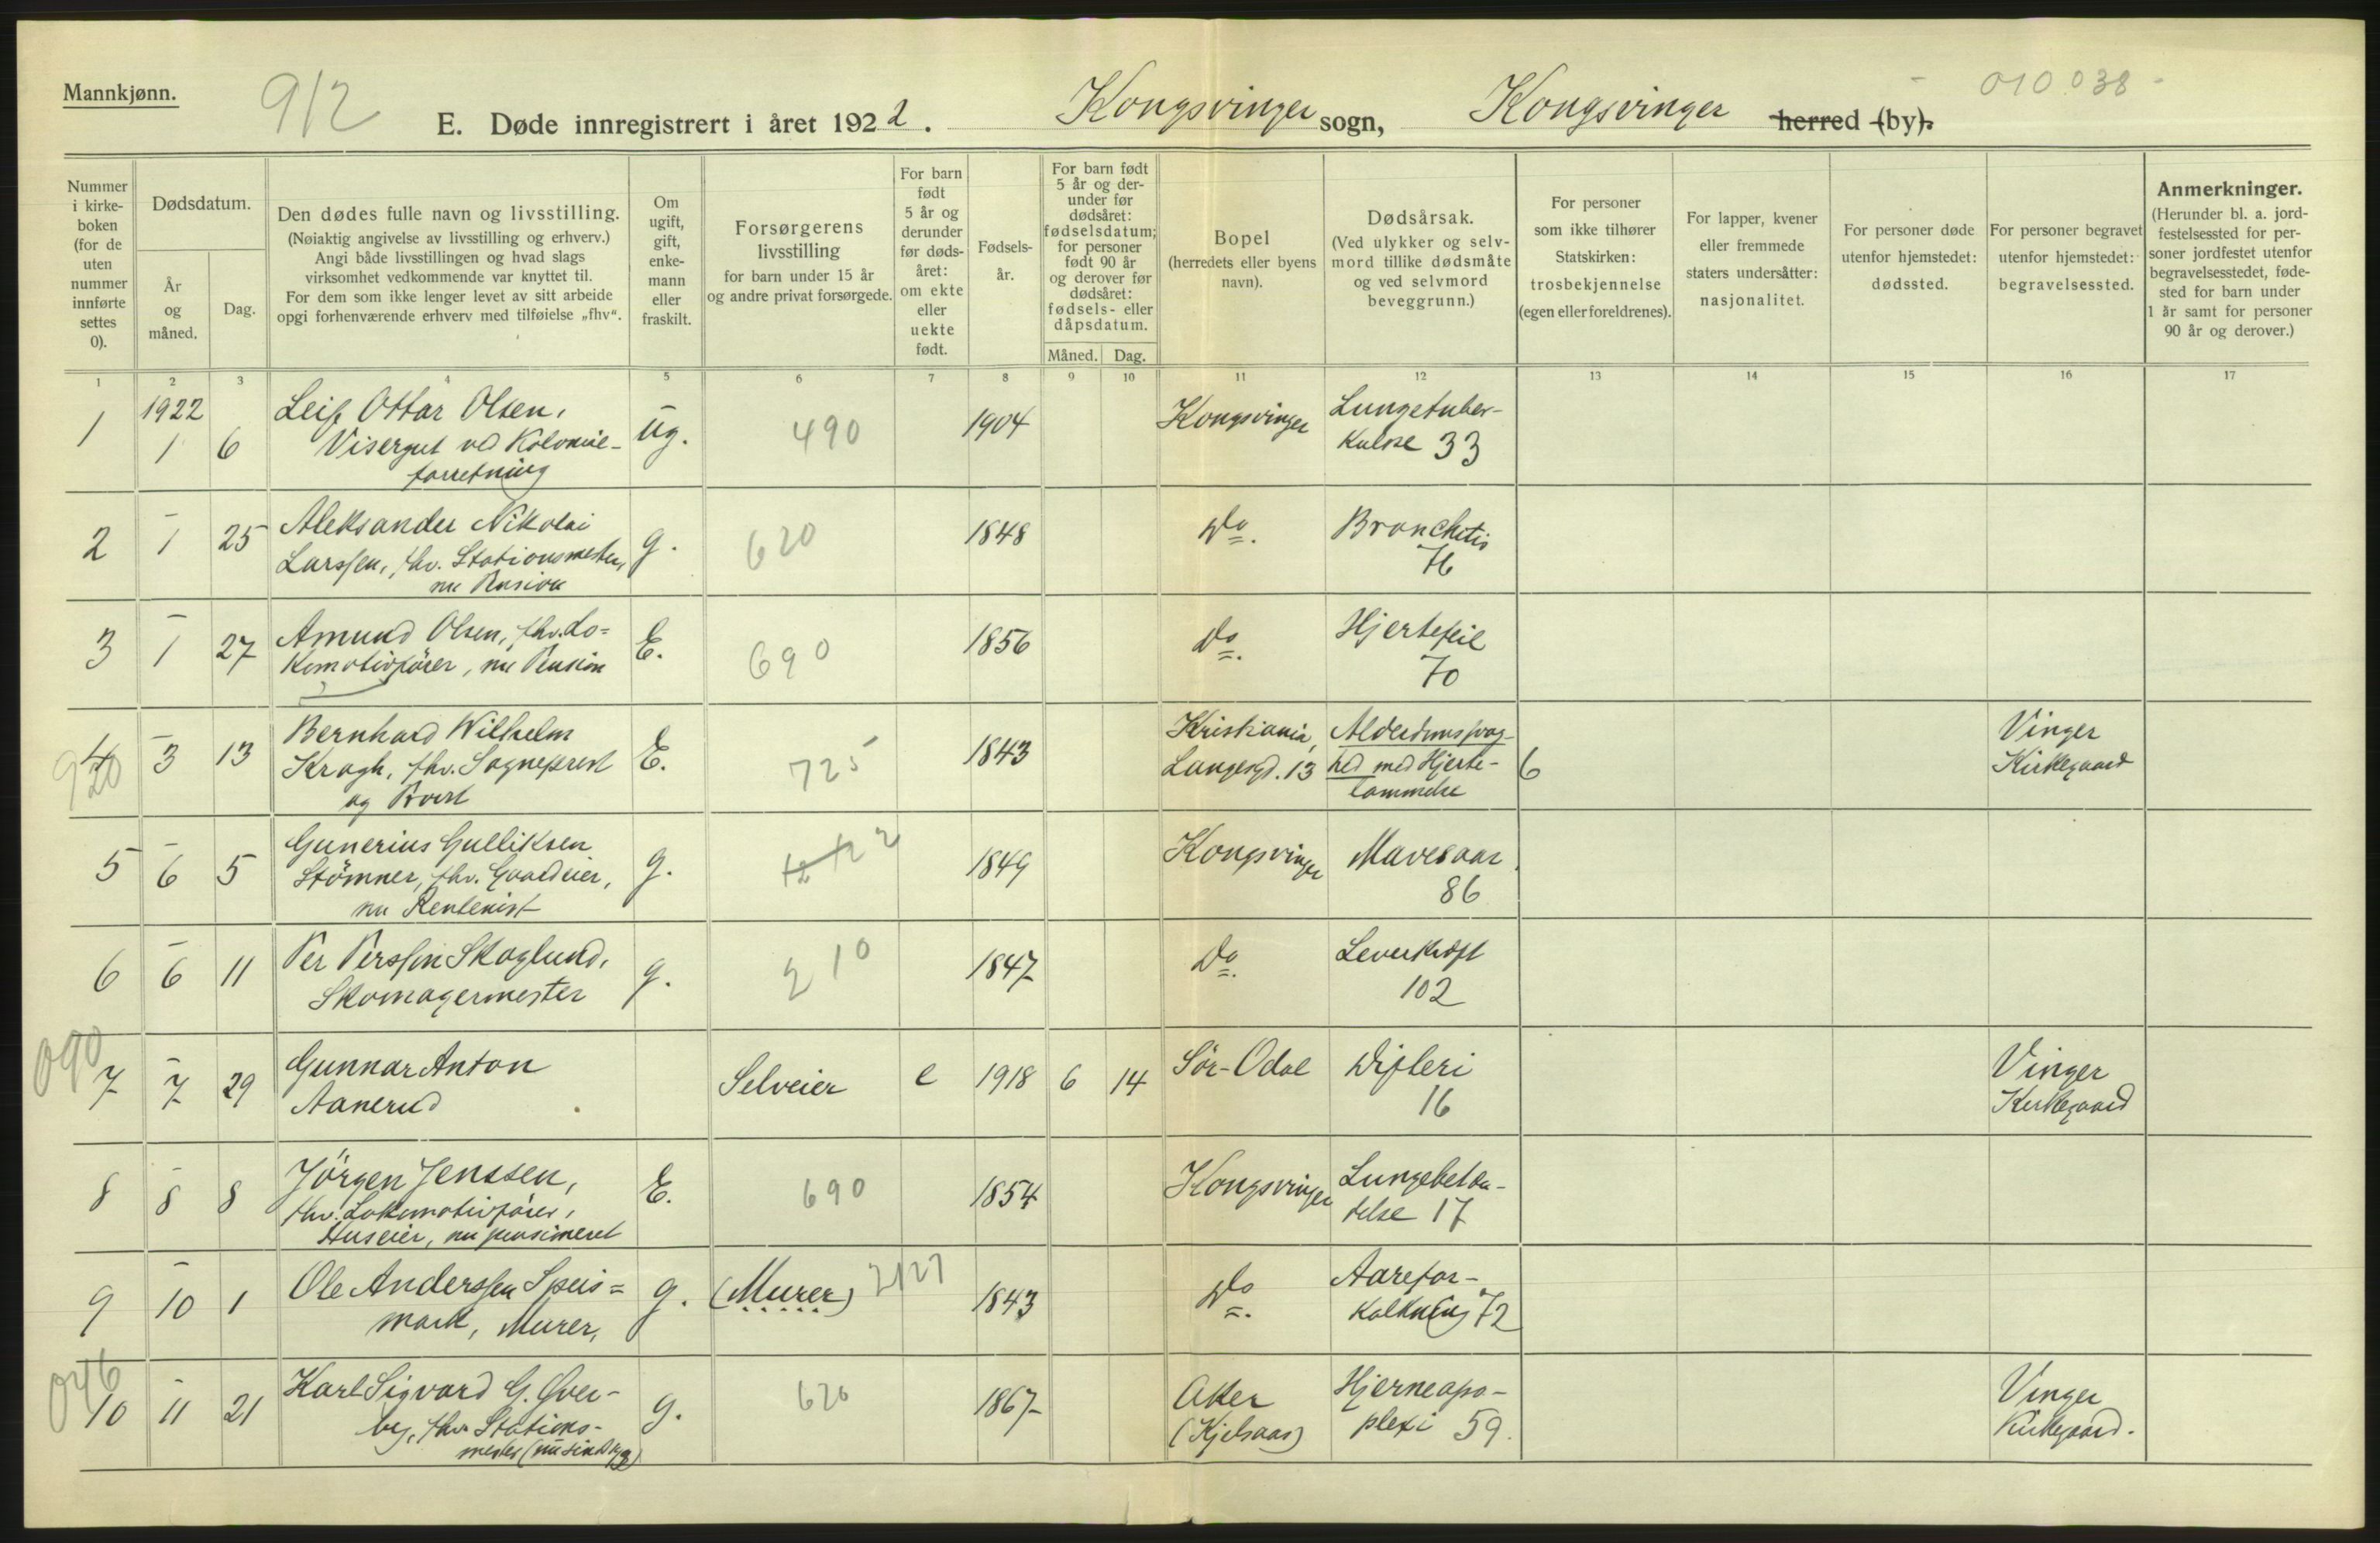 Mannkjønn.
912
E. Døde innregistrert i året 1922.
Kongsvinger sogn,
Kongsvinger herred (by).
010.038
Nummer i kirkeboken (for de uten nummer innførte settes 0).
Dødsdatum.
År og måned.
Dag.
Den dødes fulle navn og livsstilling.
(Nøiaktig angivelse av livsstilling og erhverv.)
Angi både livsstillingen og hvad slags
virksomhet vedkommende var knyttet til.
For dem som ikke lenger levet av sitt arbeide
opgi forhenværende erhverv med tilføielse „fhv“.
Om ugift, gift, enkemann eller fraskilt.
Forsørgerens livsstilling
for barn under 15 år
og andre privat forsørgede.
For barn født 5 år og derunder før dødsåret: om ekte eller uekte født.
Fødselsår.
For barn født 5 år og derunder før dødsåret: fødselsdatum; for personer født 90 år og derover før dødsåret: fødsels- eller dåpsdatum.
Måned.
Dag.
Bopel
(herredets eller byens navn).
Dødsårsak.
(Ved ulykker og selvmord tillike dødsmåte og ved selvmord beveggrunn.)
For personer som ikke tilhører Statskirken: trosbekjennelse (egen eller foreldrenes).
For lapper, kvener eller fremmede staters undersåtter: nasjonalitet.
For personer døde utenfor hjemstedet: dødssted.
For personer begravet utenfor hjemstedet: begravelsessted.
Anmerkninger.
(Herunder bl. a. jordfestelsessted for personer jordfestet utenfor begravelsesstedet, fødested for barn under 1 år samt for personer 90 år og derover.)
1 2 3 4 5 6 7 8 9 10 11 12 13 14 15 16 17
1 1922 1 6 Leif Ottar Olsen, ug. 490 1904 Kongsvinger Lungetuber-
Visergut ved Kolonial- kulose 33
forretning
2 – 1 25 Aleksander Nikolai g. 620 1848 Do. Bronchitis
Larssen, fhv. Stationsmester, 76
nu Pension
3 – 1 27 Amund Olsen, fhv. Lo= E. 690 1856 Do. Hjertefeil
komotivfører, nu Pension 70
4 920 – 3 13 Bernhard Wilhelm E. 725 1843 Kristiania, Alderdomssvag- Vinger
Krogh, fhv. Sogneprest Langesgd. 13 hed med Hjerte- 6 Kirkegaard
og Provst lammelse
5 – 6 5 Gunerius Gulliksen g. 1849 Kongsvinger Mavesaar
Stømner, fhv. Gaardeier, 86
nu Rentenist
6 – 6 11 Per Perssen Skoglund, g. 210 1847 Do. Leverkræft
Skomagermester 102
090
7 – 7 29 Gunnar Anton Selveier e 1918 6 14 Sør-Odal Difteri Vinger
Aanerud 16 Kirkegaard
8 – 8 8 Jörgen Jenssen, E. 690 1854 Kongsvinger Lungebetæn-
fhv. Lokomotivfører, delse 17
Huseier, nu pensioneret
9 – 10 1 Ole Anderssen Speis= g. (Murer) 1843 Do. Aarefor-
mark, Murer, kalkning 72
046
10 – 11 21 Karl Sigvard G. Øver- g. 620 1867 Aker Hjerneapo- Vinger
by, fhv. Stations- (Kjelsaas) plexi 59. Kirkegaard.
mester (nu sindssyg)